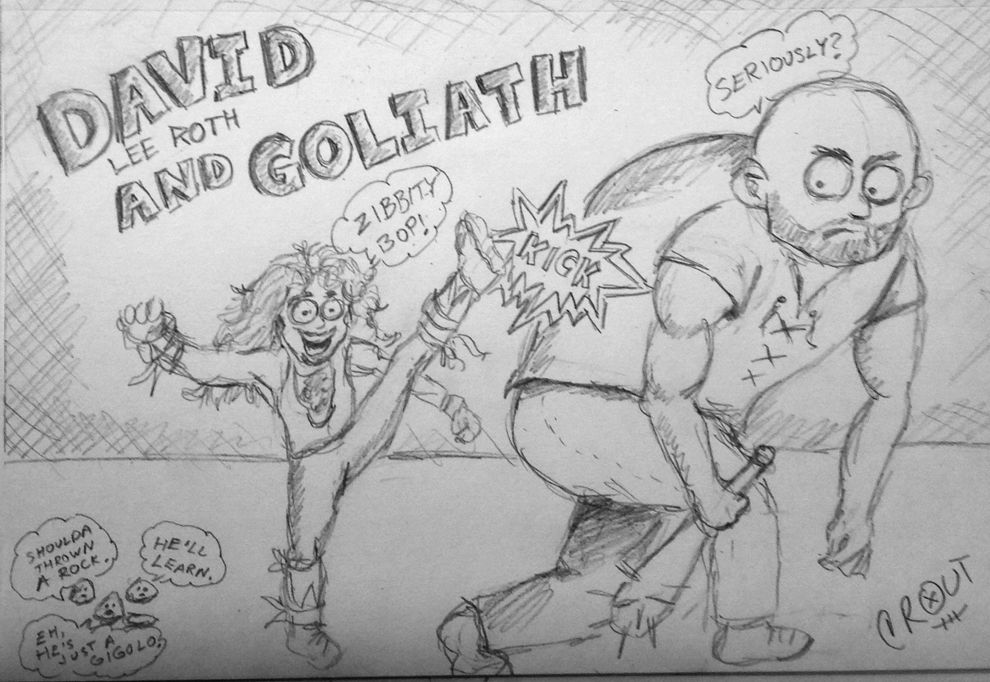 DAVID
LEE ROTH
AND GOLIATH
SERIOUSLY?
ZIBBITY
BOP!
KICK
SHOULDA
THROWN
A ROCK.
HE'LL
LEARN.
EH,
HE'S
JUST A
GIGOLO.
CROUT